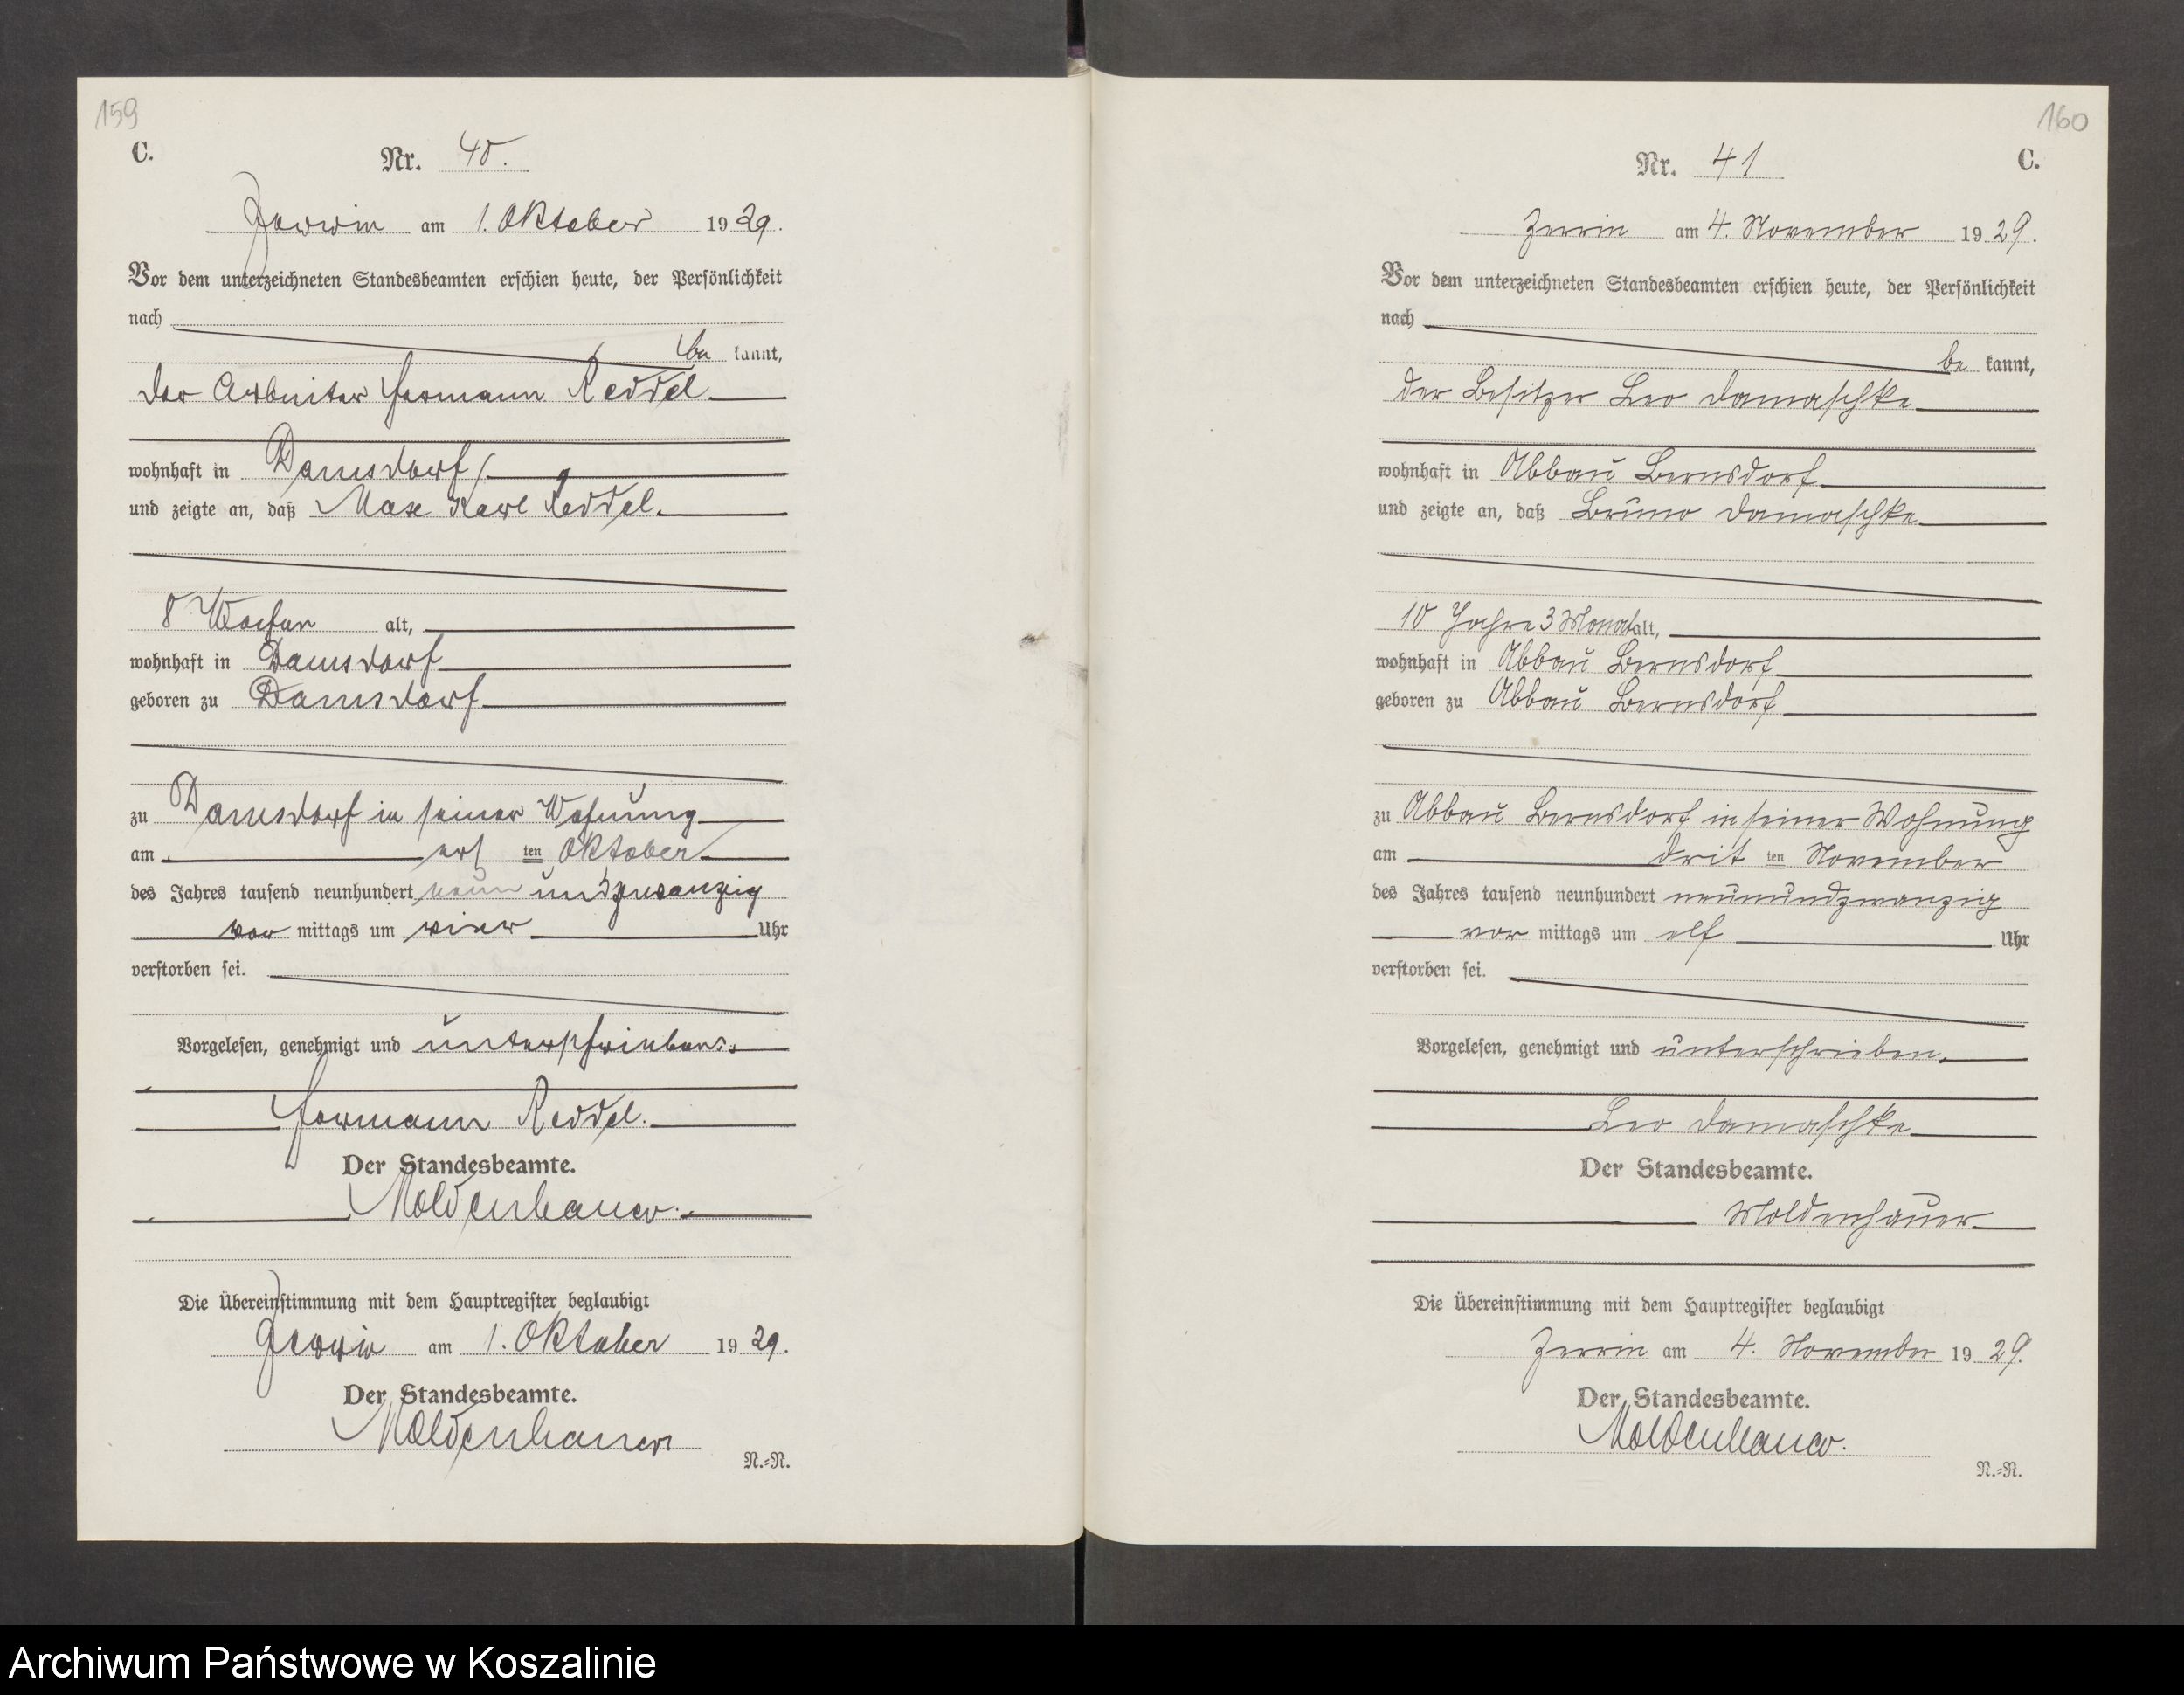 159
C.
Nr. 40.
Zerrin am 1. Oktober 1929.
Vor dem unterzeichneten Standesbeamten erschien heute, der Persönlichkeit
nach
be kannt,
der Arbeiter Hermann Reddel
wohnhaft in Damsdorf
und zeigte an, daß Max Karl Reddel.
8 Wochen alt,
wohnhaft in Damsdorf
geboren zu Damsdorf
zu Damsdorf in seiner Wohnung
am ers ten Oktober
des Jahres tausend neunhundert neun und zwanzig
vor mittags um vier Uhr
verstorben sei.
Vorgelesen, genehmigt und unterschrieben.
Hermann Reddel.
Der Standesbeamte.
Moldenhauer.
Die Übereinstimmung mit dem Hauptregister beglaubigt
Zerrin am 1. Oktober 1929.
Der Standesbeamte.
Moldenhauer
N.=N.
160
Nr. 41
C.
Zerrin am 4. November 1929.
Vor dem unterzeichneten Standesbeamten erschien heute, der Persönlichkeit
nach
be kannt,
der Besitzer Leo Damaschke
wohnhaft in Abbau Bernsdorf
und zeigte an, daß Bruno Damaschke
10 Jahre 3 Monat alt,
wohnhaft in Abbau Bernsdorf
geboren zu Abbau Bernsdorf
zu Abbau Bernsdorf in seiner Wohnung
am drit ten November
des Jahres tausend neunhundert neunundzwanzig
vor mittags um elf Uhr
verstorben sei.
Vorgelesen, genehmigt und unterschrieben.
Leo Damaschke
Der Standesbeamte.
Moldenhauer
Die Übereinstimmung mit dem Hauptregister beglaubigt
Zerrin am 4. November 1929.
Der Standesbeamte.
Moldenhauer.
N.=N.
Archiwum Państwowe w Koszalinie